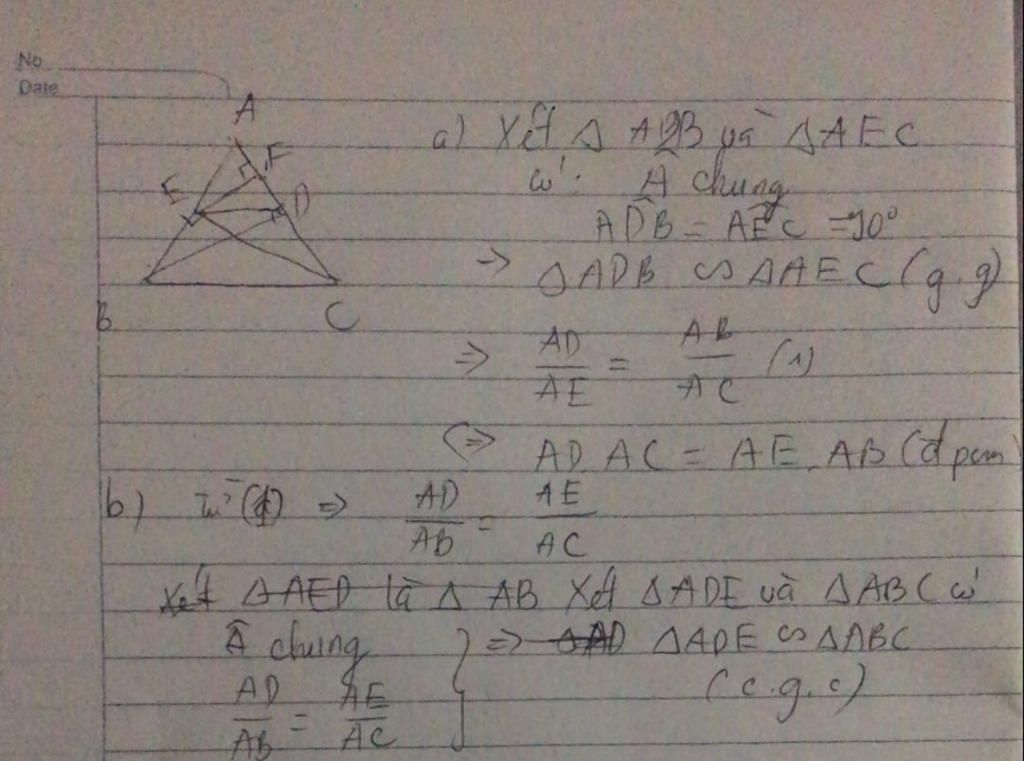 No
Date
A
F
E
D
B
C
a) Xét Δ ADB và Δ AEC
có: Â chung
ADB̂ = AEĈ = 90°
→ Δ ADB ∽ Δ AEC (g.g)
⇒ AD/AE = AB/AC (1)
⇔ AD AC = AE . AB (đpcm
b) Từ (1) ⇒ AD/AB = AE/AC
Xét Δ AED là Δ AB Xét Δ ADE và Δ ABC có
Â chung } ⇒ ΔAD Δ ADE ∽ Δ ABC
AD/AB = AE/AC (c.g.c)